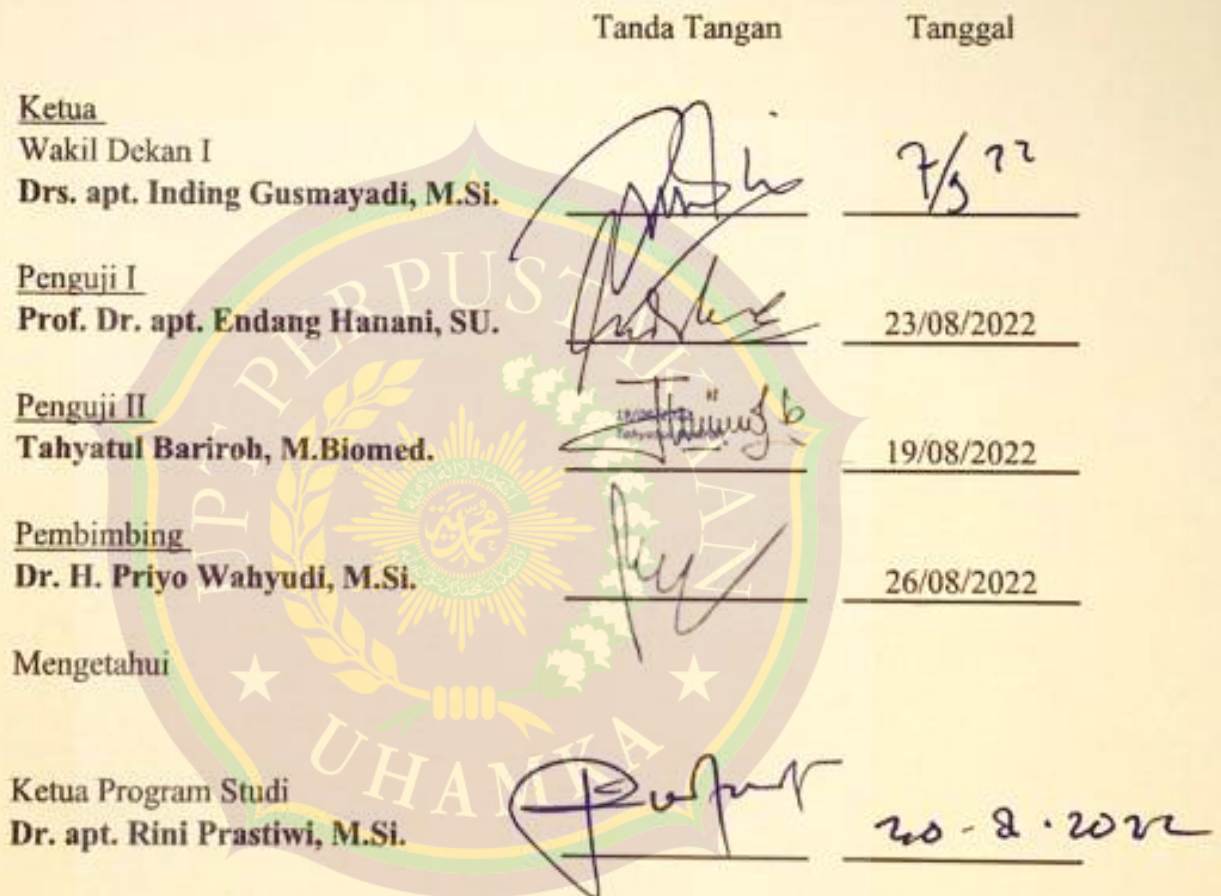 Tanda Tangan Tanggal
Ketua
Wakil Dekan I
Drs. apt. Inding Gusmayadi, M.Si.
Penguji I
Prof. Dr. apt. Endang Hanani, SU.
23/08/2022
Penguji II
Tahyatul Bariroh, M.Biomed.
19/08/2022
Pembimbing
Dr. H. Priyo Wahyudi, M.Si.
26/08/2022
Mengetahui
Ketua Program Studi
Dr. apt. Rini Prastiwi, M.Si.
UPT PERPUSTAKAAN
UHAMKA